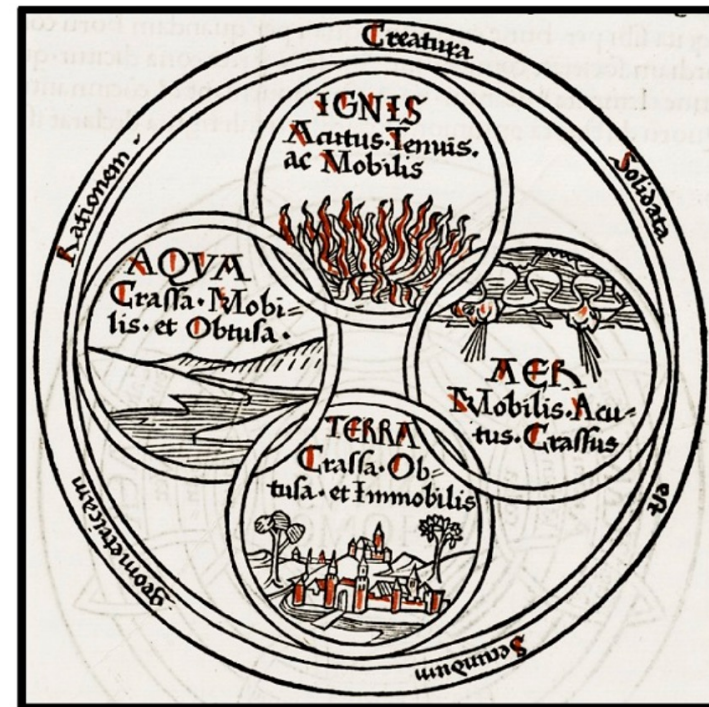 Creatura
Solidata
est
Secundum
geometricam
Rationem
IGNIS
Acutus·Tenuis·
ac Mobilis
AQVA
Crassa·Mobi=
lis·et Obtusa·
AER
Mobilis·Acu=
tus·Crassus
TERRA
Crassa·Ob=
tusa·et Immobilis